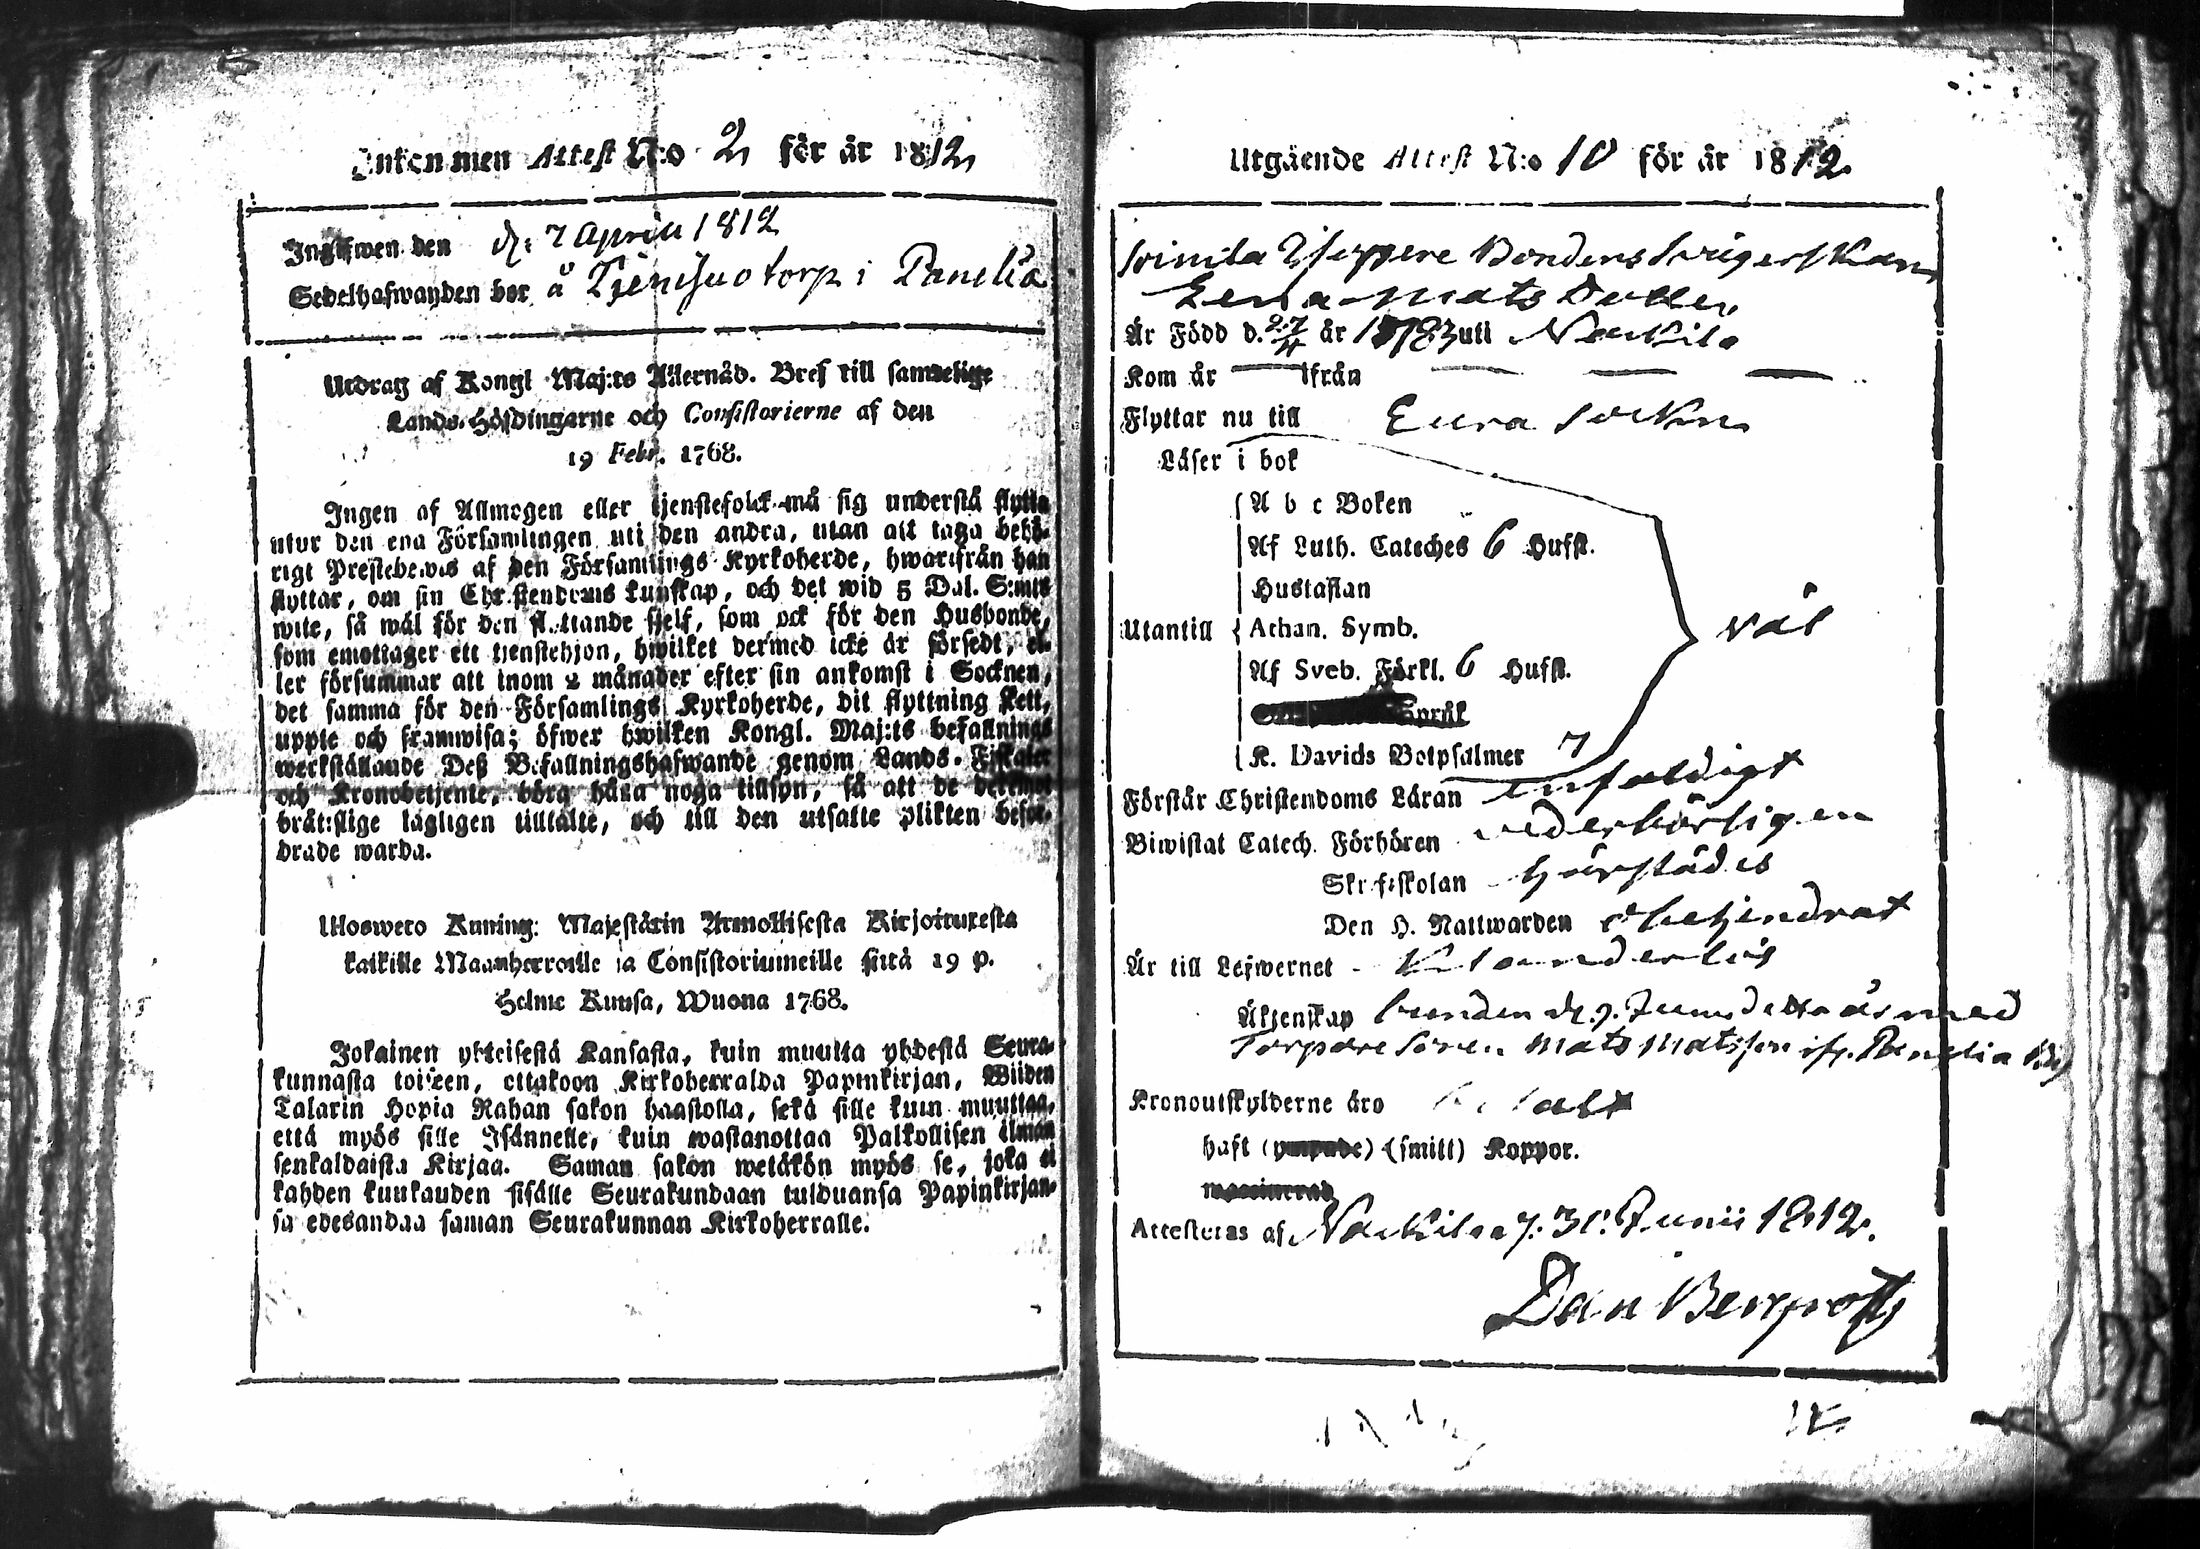 Inkommen Attest N:o 2 för år 1812
Ingifwen den d. 7 April 1812
Sedelhafwanden bor å torp i Panelia
Utdrag af Kongl. Maj:ts Allernåd. Bref till samtelige
Lands-Höfdingarne och Consistorierne af den
19 Febr. 1768.
Ingen af Allmogen eller tjenstefolck må sig understå flytta
utur den ena Församlingen uti den andra, utan att taga behö-
rigt Prestebewis af den Församlings Kyrkoherde, hwarifrån han
flyttar, om sin Christendoms kunskap, och det wid 5 Dal. S:mts
wite, så wäl för den flyttande sjelf, som ock för den Husbonde,
som emottager ett tjenstehjon, hwilket dermed icke är försedt, el-
ler försummar att inom 2 månader efter sin ankomst i Socknen,
det samma för den Församlings Kyrkoherde, dit flyttning skett,
uppte och framwisa; öfwer hwilken Kongl. Maj:ts befallnings
werkställande Deß Befallningshafwande genom Lands-Fiskaler
och Kronobetjente, böra hafwa noga tillsyn, så att de deremot
brätslige lagligen tilltalte, och till den utsatte plikten befor-
drade warda.
Ulosweto Kuning: Majestätin Armollisesta Kirjoituxesta
kaikille Maanherroille ja Consistoriumeille siitä 19 p.
Helme Kuusa, Wuona 1768.
Jokainen yhteisestä Kansasta, kuin muutta yhdestä Seura-
kunnasta toiseen, ottakoon Kirkoherralda Papinkirjan, Wiiden
Talarin Hopia Rahan sakon haastolla, sekä sille kuin muuttaa,
että myös sille Isännelle, kuin wastanottaa Palkollisen ilman
senkaldaista Kirjaa. Saman sakon wetäkön myös se, joka ei
kahden kuukauden sisälle Seurakundaan tulduansa Papinkirjan-
sa edesandaa saman Seurakunnan Kirkoherralle.
Utgående Attest N:o 10 för år 1812
Bondens Swägerskan
Lena Mats Dotter
Är Född d. 27/4 år 1783 uti Nackila
Kom år — ifrån — — —
Flyttar nu till Eura Sockn
Läser i bok
A b c Boken
Af Luth. Cateches 6 Hufst.
Hustaflan
Utantill Athan. Symb. wäl
Af Sveb. Förkl. 6 Hufst.
Språk
K. Davids Botpsalmer 7
Förstår Christendoms Läran enfaldigt
Biwistat Catech. Förhören wederbörligen
Skriftskolan härstädes
Den H. Nattwarden obehindrat
Är till Lefwernet klanderlös
Äktenskap bunden d. Junii detta år med
Torpare Sonen Mats Matsson ifr. Panelia By
Kronoutskylderne äro betalt
haft (ympade) (smitt) Koppor.
Attesteras af Nackila d. 30 Junii 1812.
Dan Bergroth